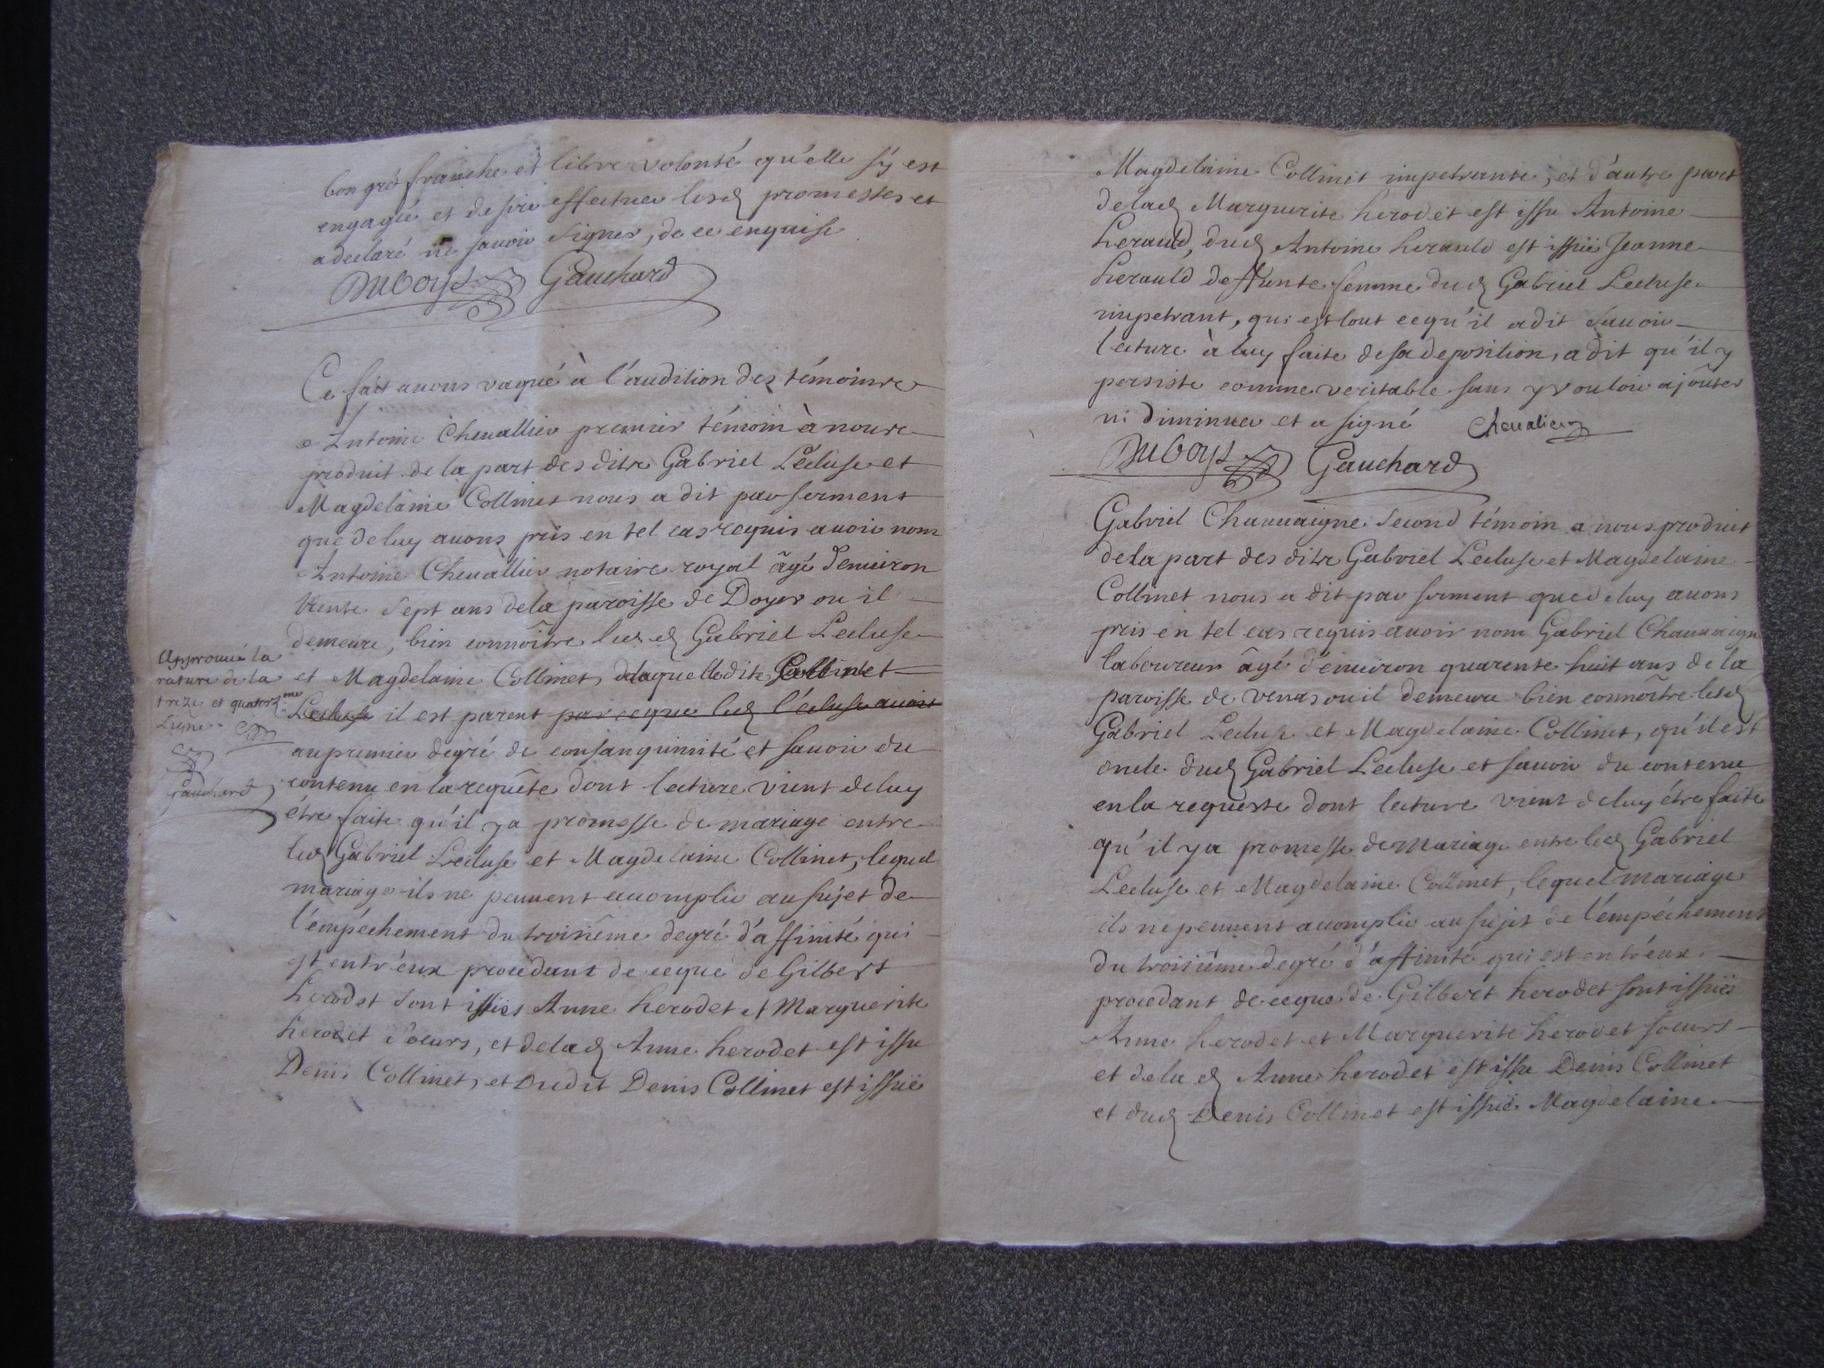 bon gré franche et libre volonté qu'elle s'y est
engagée et desire effectuer lesd promesses et
a declaré ne savoir signer, de ce enquise
Duboys Gauchard
Ce fait avons vaqué à l'audition des témoins
Antoine Chevallier premier témoin à nous
produit de la part des dits Gabriel Lécluse et
Magdelaine Collinet nous a dit par serment
que de luy avons pris en tel cas requis avoir nom
Antoine Chevallier notaire royal âgé d'environ
trente sept ans de la paroisse de Doyer ou il
demeure, bien connoître led Gabriel Lecluse
et Magdelaine Collinet, delaquelle dite Collinet
Lecluse il est parent parceque led l'écluse avoit
au premier degré de consanguinité et savoir du
contenu en la requête dont lecture vient de luy
être faite qu'il y a promesse de mariage entre
led Gabriel Lecluse et Magdelaine Collinet, lequel
mariage ils ne peuvent accomplir au sujet de
l'empéchement du troisième degré d'affinité qui
est entr'eux procédant de ceque de Gilbert
herodet sont issues Anne herodet et Marguerite
herodet soeurs, et delad Anne herodet est issu
Denis Collinet, et dudit Denis Collinet est issuë
Approuvé la
rature de la
treize et quatorzme
Ligne
Gauchard
Magdelaine Collinet impetrante, et d'autre part
delad Marguerite herodet est issu Antoine
herauld, dud Antoine herauld est issuë Jeanne
herauld deffunte femme dud Gabriel Lecluse
impetrant, qui est tout ce qu'il a dit savoir
lecture à luy faite de sa deposition, a dit qu'il y
persiste comme veritable sans y vouloir ajoûter
ni diminuer et a signé Chevalier
Duboys Gauchard
Gabriel Chauvaigne second témoin a nous produit
de la part des dits Gabriel Lecluse et Magdelaine
Collinet nous a dit par serment que de luy avons
pris en tel cas requis avoir nom Gabriel Chauvaigne
laboureur âgé d'environ quarente huit ans de la
paroisse de venas ou il demeure bien connoître lesd
Gabriel Lecluse et Magdelaine Collinet, qu'il est
oncle dud Gabriel Lecluse et savoir du contenu
en la requeste dont lecture vient de luy être faite
qu'il y a promesse de Mariage entre led Gabriel
Lecluse et Magdelaine Collinet, lequel mariage
ils ne peuvent accomplir au sujet de l'empéchement
du troisième degré d'affinité qui est entr'eux
procedant de ceque de Gilbert herodet sont issuës
Anne herodet et Marguerite herodet soeurs
et de la d Anne herodet est issu Denis Collinet
et dud Denis Collinet est issuë Magdelaine